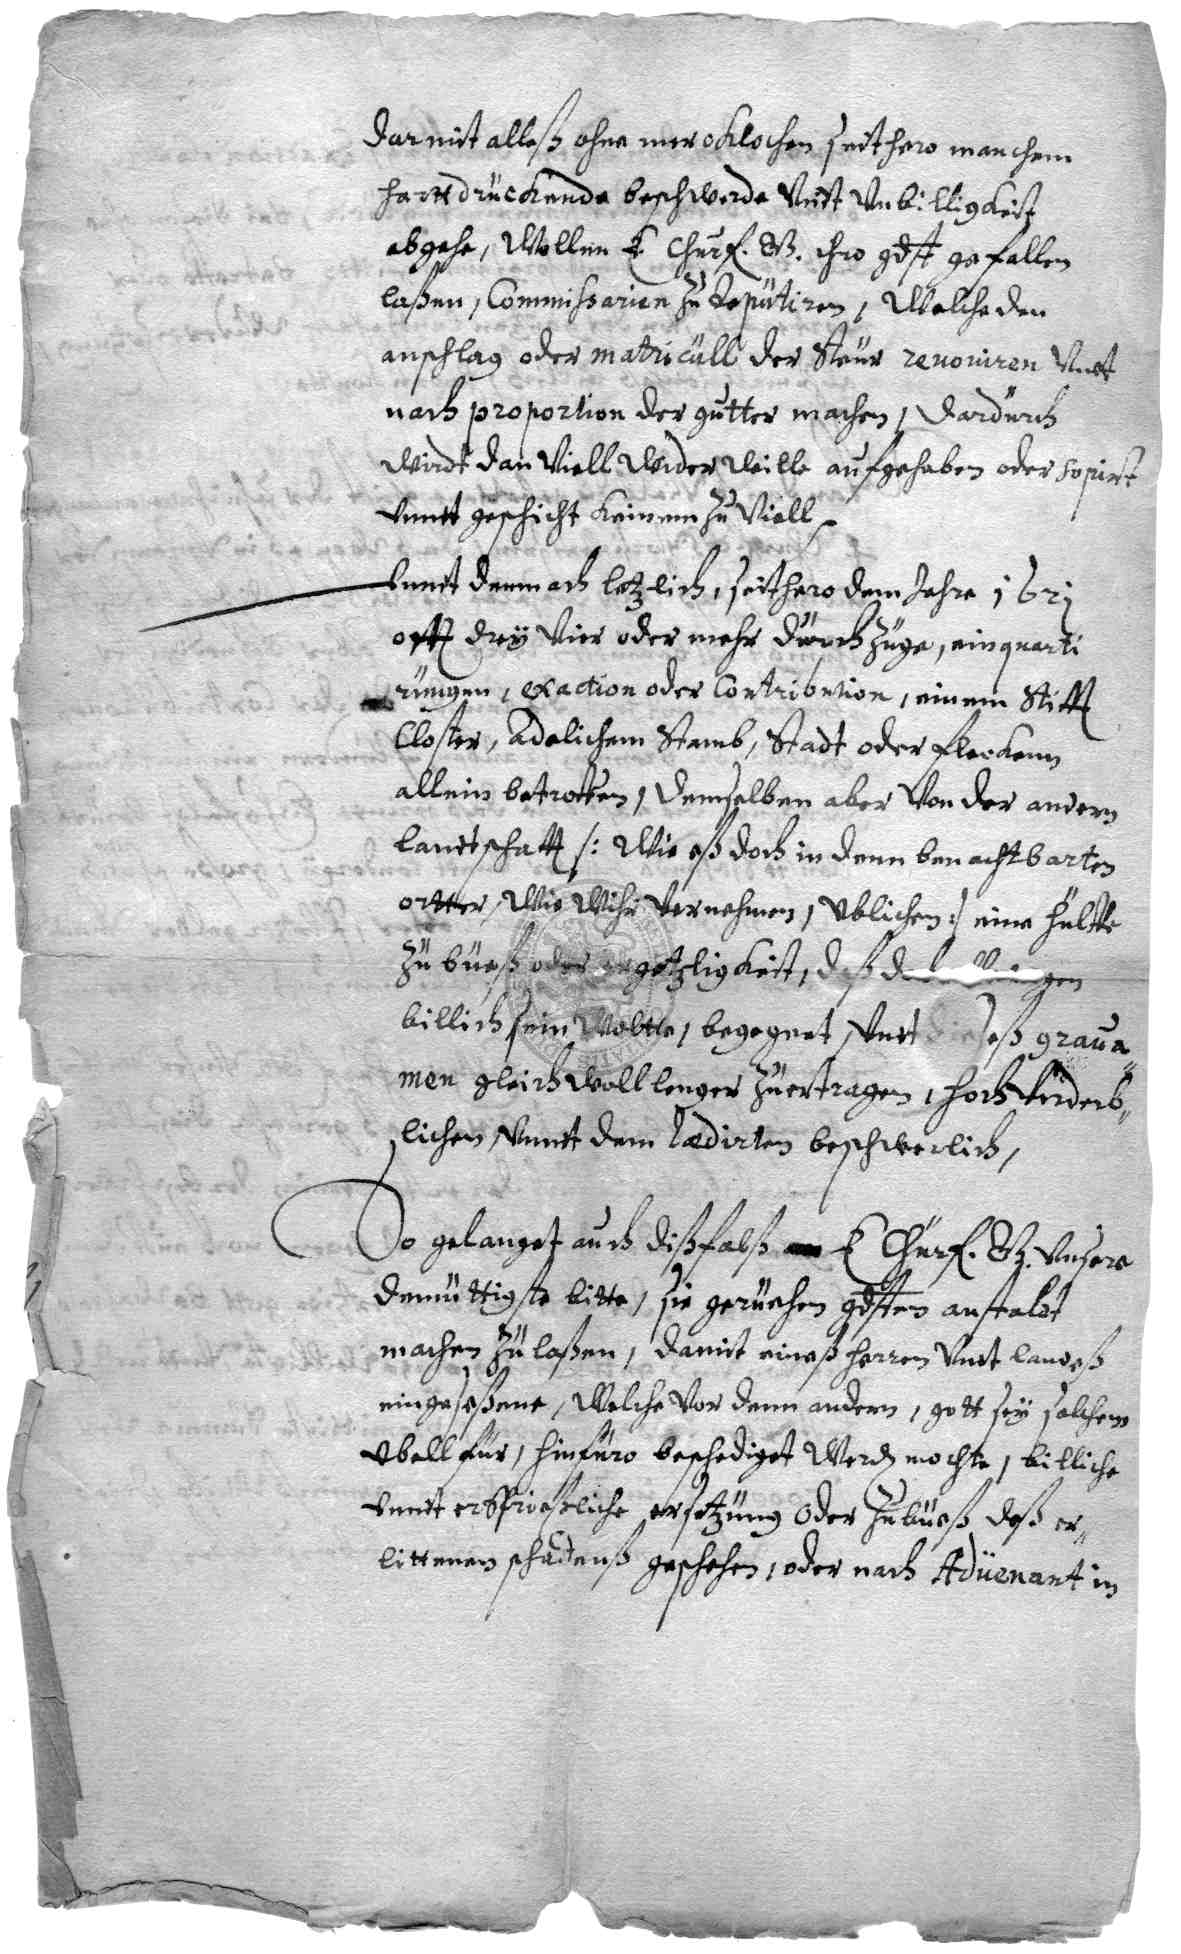 darmit alleß ohne mer seithero manchem
harttdrückende beschwerde vndt vnbilligkeit
abgehe, Wollen E Churf. G. ihro gdst gefallen
laßen, Commissarien zu deputiren, Welche den
anschlag oder matricull der Steur renouiren vndt
nach proportion der gutter machen, dardurch
wirdt dan viell widerwille aufgehaben oder sopirt
vnndt geschicht keinem zu viell
Vnndt demnach letzlich, seithero dem Jahre 1621
offt drey vier oder mehr durchzüge, einquarti
rungen, exaction oder Contribution, einem Stifft
Closter, Adelichem Stamb, Stadt oder fleckenn
allein betrotten, demselben aber von der andern
landtschafft /: Wie eß doch in denn benachtbarten
ortter, Wie Wihr vernehmen, vblichen :/ eine hülffe
zu bueß oder ergetzligkeit, deß
billich sein wolte, begegnet, vndt dieseß graua
men gleichwoll lenger zuertragen, hoch verderb
lichen, vnndt dem lædirten beschwerlich,
So gelanget auch dißfalß an E Churf. G. vnsere
demuttigste bitte, sie geruehen gdsten anstaldt
machen zu laßen, damit eineß herren vndt landeß
eingeseßene, Welche vor denn andern, gott sey solchem
vbell für, hinfüro beschediget werden mochte, billiche
vnndt ersprießliche ersetzung oder zubueß deß er„
littenen schadenß geschehen, oder nach Aduenant in